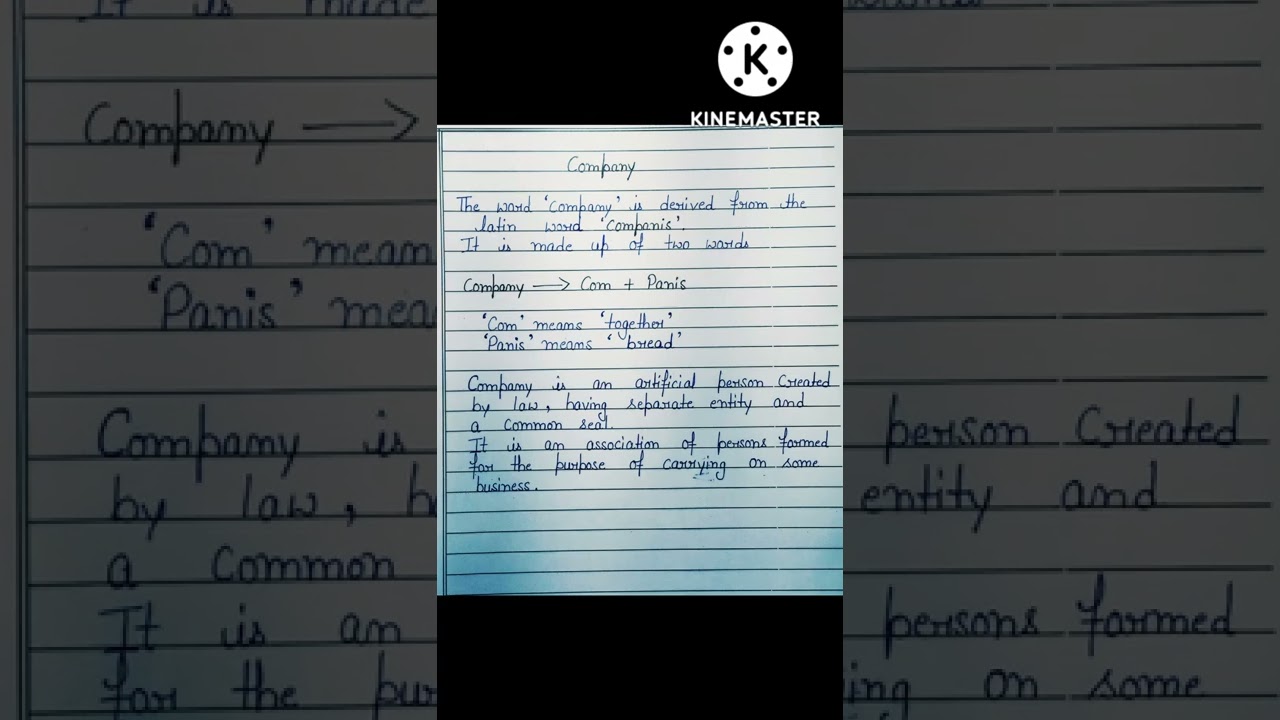 KINEMASTER
Company
The word 'Company' is derived from the
latin word 'Companis'.
It is made up of two words
Company → Com + Panis
'Com' means 'together'
'Panis' means 'bread'
Company is an artificial person Created
by law, having separate entity and
a common seal.
It is an association of persons formed
for the purpose of carrying on some
business.